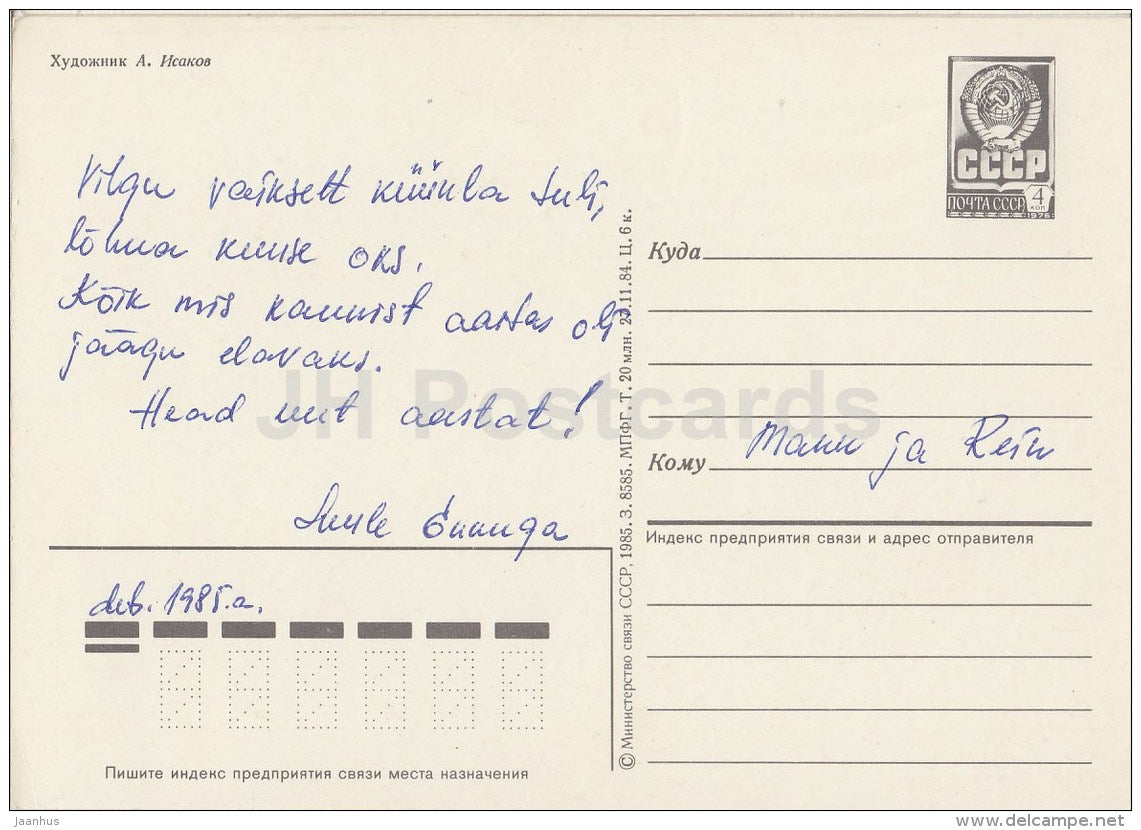 Художник А. Исаков
Vilgu vaikselt küünla tuli,
lõhna kuuse oks.
Kõik mis kaunist aastas oli
jäägu elavaks.
Head uut aastat!
dets. 1985.a.
Пишите индекс предприятия связи места назначения
© Министерство связи СССР, 1985. З. 8585. МПФГ. Т. 20 млн. 27.11.84. Ц. 6 к.
СССР
ПОЧТА СССР 4 КОП
1976
Куда
Кому Mann ja Rein
Индекс предприятия связи и адрес отправителя
JH Postcards
Jaanhus
www.delcampe.net